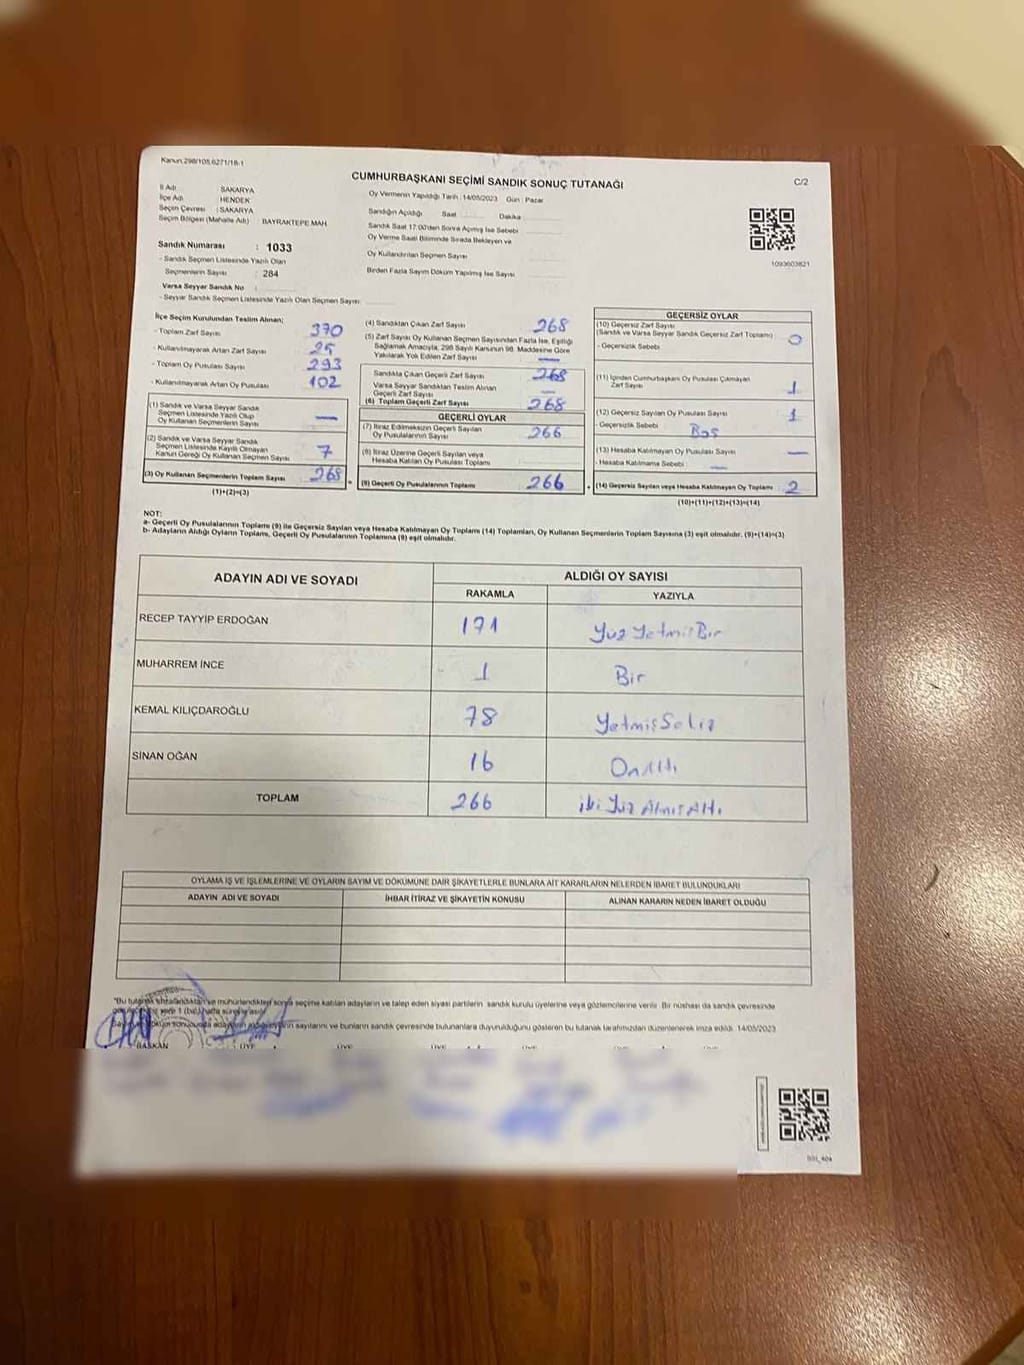 Kanun:298/105,6271/18-1
CUMHURBAŞKANI SEÇİMİ SANDIK SONUÇ TUTANAĞI
C/2
İl Adı : SAKARYA
İlçe Adı : HENDEK
Seçim Çevresi : SAKARYA
Seçim Bölgesi (Mahalle Adı) : BAYRAKTEPE MAH
Sandık Numarası : 1033
- Sandık Seçmen Listesinde Yazılı Olan
Seçmenlerin Sayısı : 284
Varsa Seyyar Sandık No :
- Seyyar Sandık Seçmen Listesinde Yazılı Olan Seçmen Sayısı:
Oy Vermenin Yapıldığı Tarih :14/05/2023 Gün : Pazar
Sandığın Açıldığı Saat Dakika
Sandık Saat 17:00'den Sonra Açılmış İse Sebebi
Oy Verme Saati Bitiminde Sırada Bekleyen ve
Oy Kullandırılan Seçmen Sayısı
Birden Fazla Sayım Döküm Yapılmış İse Sayısı
1093603821
İlçe Seçim Kurulundan Teslim Alınan;
- Toplam Zarf Sayısı 370
- Kullanılmayarak Artan Zarf Sayısı 25
- Toplam Oy Pusulası Sayısı 293
- Kullanılmayarak Artan Oy Pusulası 102
(1) Sandık ve Varsa Seyyar Sandık
Seçmen Listesinde Yazılı Olup
Oy Kullanan Seçmenlerin Sayısı —
(2) Sandık ve Varsa Seyyar Sandık
Seçmen Listesinde Kayıtlı Olmayan
Kanun Gereği Oy Kullanan Seçmen Sayısı 7
(3) Oy Kullanan Seçmenlerin Toplam Sayısı 268
(1)+(2)=(3)
(4) Sandıktan Çıkan Zarf Sayısı 268
(5) Zarf Sayısı Oy Kullanan Seçmen Sayısından Fazla İse, Eşitliği
Sağlamak Amacıyla, 298 Sayılı Kanunun 98. Maddesine Göre
Yakılarak Yok Edilen Zarf Sayısı —
Sandıkta Çıkan Geçerli Zarf Sayısı 268
Varsa Seyyar Sandıktan Teslim Alınan
Geçerli Zarf Sayısı —
(6) Toplam Geçerli Zarf Sayısı 268
GEÇERLİ OYLAR
(7) İtiraz Edilmeksizin Geçerli Sayılan
Oy Pusulalarının Sayısı 266
(8) İtiraz Üzerine Geçerli Sayılan veya
Hesaba Katılan Oy Pusulası Toplamı
= (9) Geçerli Oy Pusulalarının Toplamı 266
GEÇERSİZ OYLAR
(10) Geçersiz Zarf Sayısı
(Sandık ve Varsa Seyyar Sandık Geçersiz Zarf Toplamı) 0
- Geçersizlik Sebebi
(11) İçinden Cumhurbaşkanı Oy Pusulası Çıkmayan
Zarf Sayısı 1
(12) Geçersiz Sayılan Oy Pusulası Sayısı 1
- Geçersizlik Sebebi Boş
(13) Hesaba Katılmayan Oy Pusulası Sayısı —
- Hesaba Katılmama Sebebi —
+ (14) Geçersiz Sayılan veya Hesaba Katılmayan Oy Toplamı 2
(10)+(11)+(12)+(13)=(14)
NOT:
a- Geçerli Oy Pusulalarının Toplamı (9) ile Geçersiz Sayılan veya Hesaba Katılmayan Oy Toplamı (14) Toplamları, Oy Kullanan Seçmenlerin Toplam Sayısına (3) eşit olmalıdır. (9)+(14)=(3)
b- Adayların Aldığı Oyların Toplamı, Geçerli Oy Pusulalarının Toplamına (9) eşit olmalıdır.
ADAYIN ADI VE SOYADI ALDIĞI OY SAYISI
RAKAMLA YAZIYLA
RECEP TAYYİP ERDOĞAN 171 YüzYetmişBir
MUHARREM İNCE 1 Bir
KEMAL KILIÇDAROĞLU 78 YetmişSekiz
SİNAN OĞAN 16 OnAltı
TOPLAM 266 iki Yüz AltmışAltı
OYLAMA İŞ VE İŞLEMLERİNE VE OYLARIN SAYIM VE DÖKÜMÜNE DAİR ŞİKAYETLERLE BUNLARA AİT KARARLARIN NELERDEN İBARET BULUNDUKLARI
ADAYIN ADI VE SOYADI İHBAR İTİRAZ VE ŞİKAYETİN KONUSU ALINAN KARARIN NEDEN İBARET OLDUĞU
"Bu tutanak imzalandıktan ve mühürlendikten sonra seçime katılan adayların ve talep eden siyasi partilerin sandık kurulu üyelerine veya gözlemcilerine verilir. Bir nüshası da sandık çevresinde
1 (bir) hafta süreyle asılır.
sonucunda adayların aldığı oyların sayılarını ve bunların sandık çevresinde bulunanlara duyurulduğunu gösteren bu tutanak tarafımızdan düzenlenerek imza edildi. 14/05/2023
BAŞKAN ÜYE ÜYE